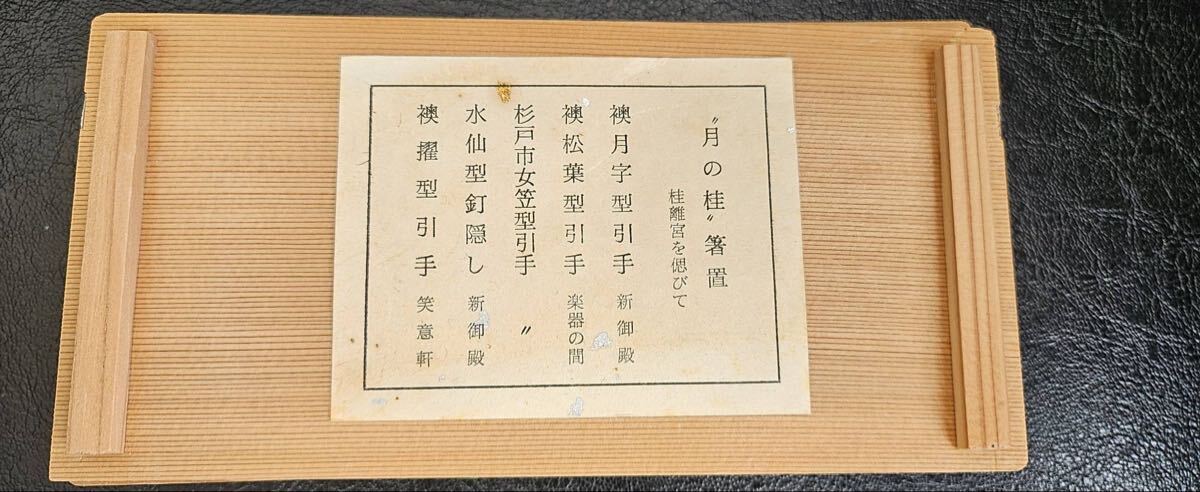 〝月の桂〟箸置
桂離宮を偲びて
襖月字型引手 新御殿
襖松葉型引手 楽器の間
杉戸市女笠型引手 〃
水仙型釘隠し 新御殿
襖擢型引手 笑意軒